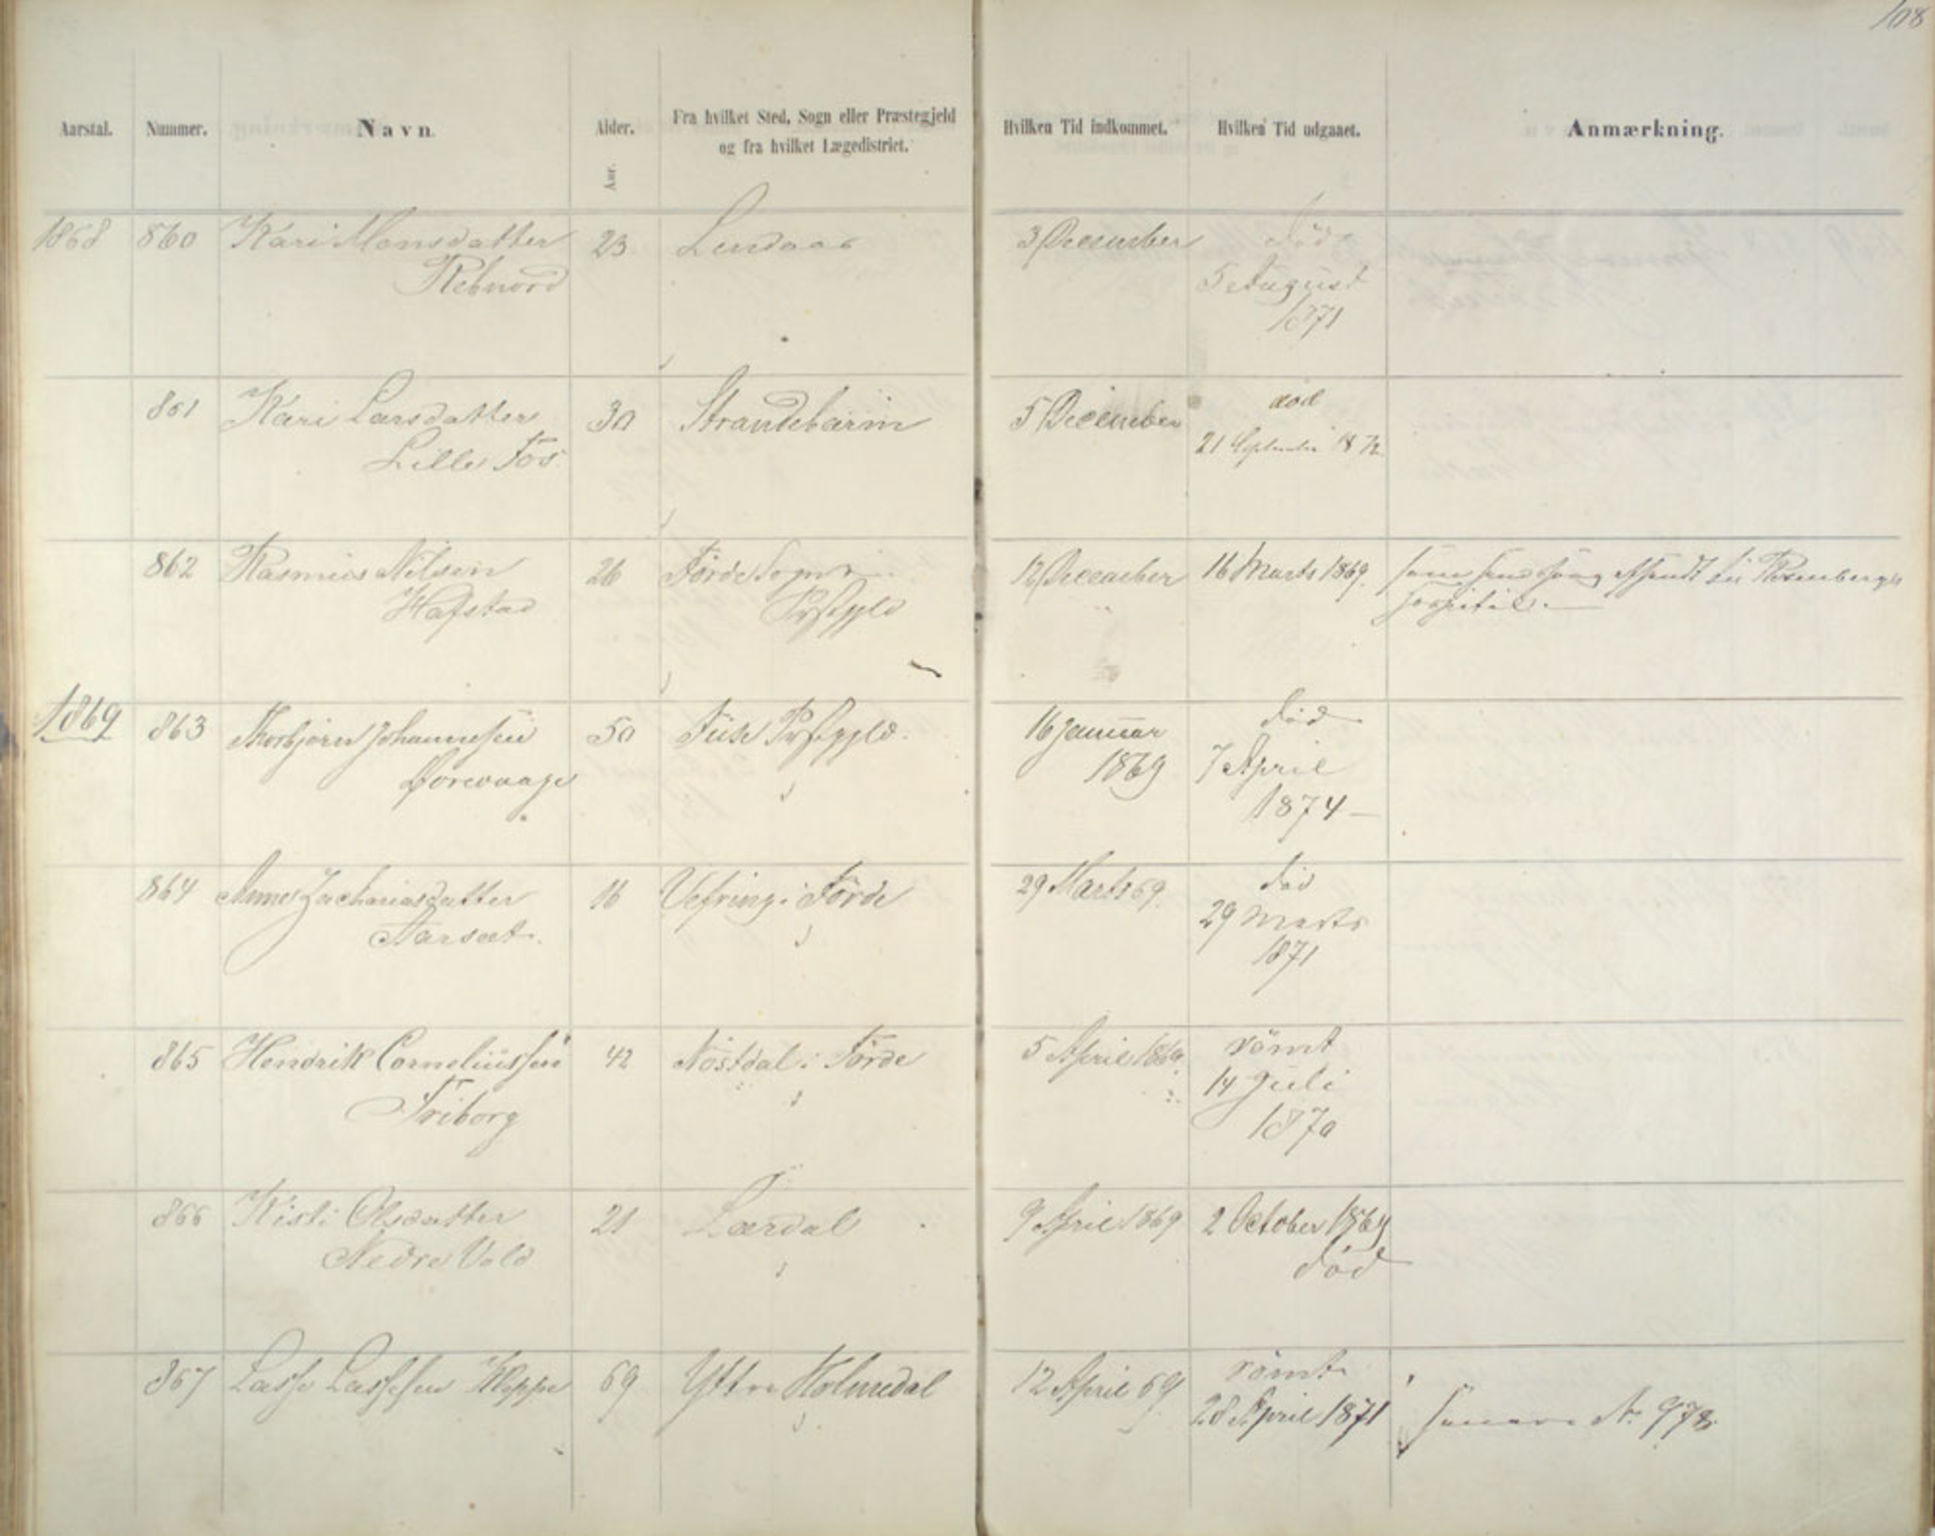 108
Aarstal. Nummer. Navn. Alder. Fra hvilket Sted, Sogn eller Præstegjeld Hvilken Tid indkommet. Hvilken Tid udgaaet. Anmærkning.
Aar. og fra hvilket Lægedistrict.
1868 860 Kari Monsdatter 23 Lindaas 3 December död
Rebnord 5 August
1871
861 Kari Larsdatter 30 Strandebarm 5 December död
Lille Fos 21 September 1872
862 Rasmus Nilsen 26 Förde Sogn 12 December 16 Marts 1869. til Rosenbergs
Hafstad Prstgjld Hospital.
1869 863 Thorbjörn Johannessen 50 Fuse Prstgjld. 16 Januar död
Dorevaage 1869 7 April
1874
864 Anne Zachariasdatter 16 Vefring i Förde 29 Marts 69. död
Aarsæt. 29 Marts
1871
865 Hendrik Corneliussen 42 Nöstdal i Förde 5 April 1869. römt
Friborg 14 Juli
1870
866 Kisti Olsdatter 21 Lærdal 9 April 1869 2 October 1869
Nedre Vold död
867 Lasse Lassesen Kleppe 69 Yttre Holmedal 12 April 69 römt
28 April 1871 senere N. 978.